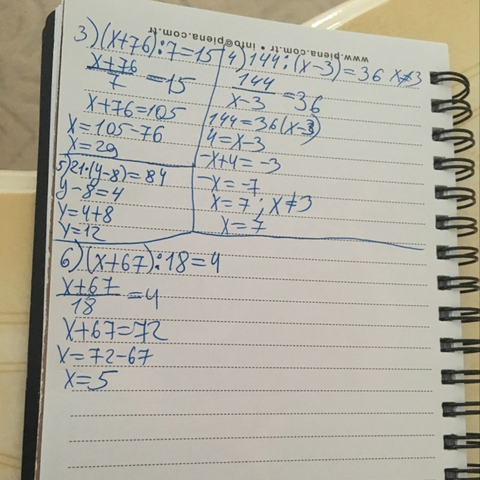 www.piena.com.tr • info@piena.com.tr
3) (x+76):7=15
x+76
7
=15
x+76=105
x=105-76
x=29
4) 144:(x-3)=36 x≠3
144
x-3
=36
144=36(x-3)
4=x-3
-x+4=-3
-x=-7
x=7; x≠3
x=7
5) 21·(y-8)=84
y-8=4
y=4+8
y=12
6) (x+67):18=4
x+67
18
=4
x+67=72
x=72-67
x=5